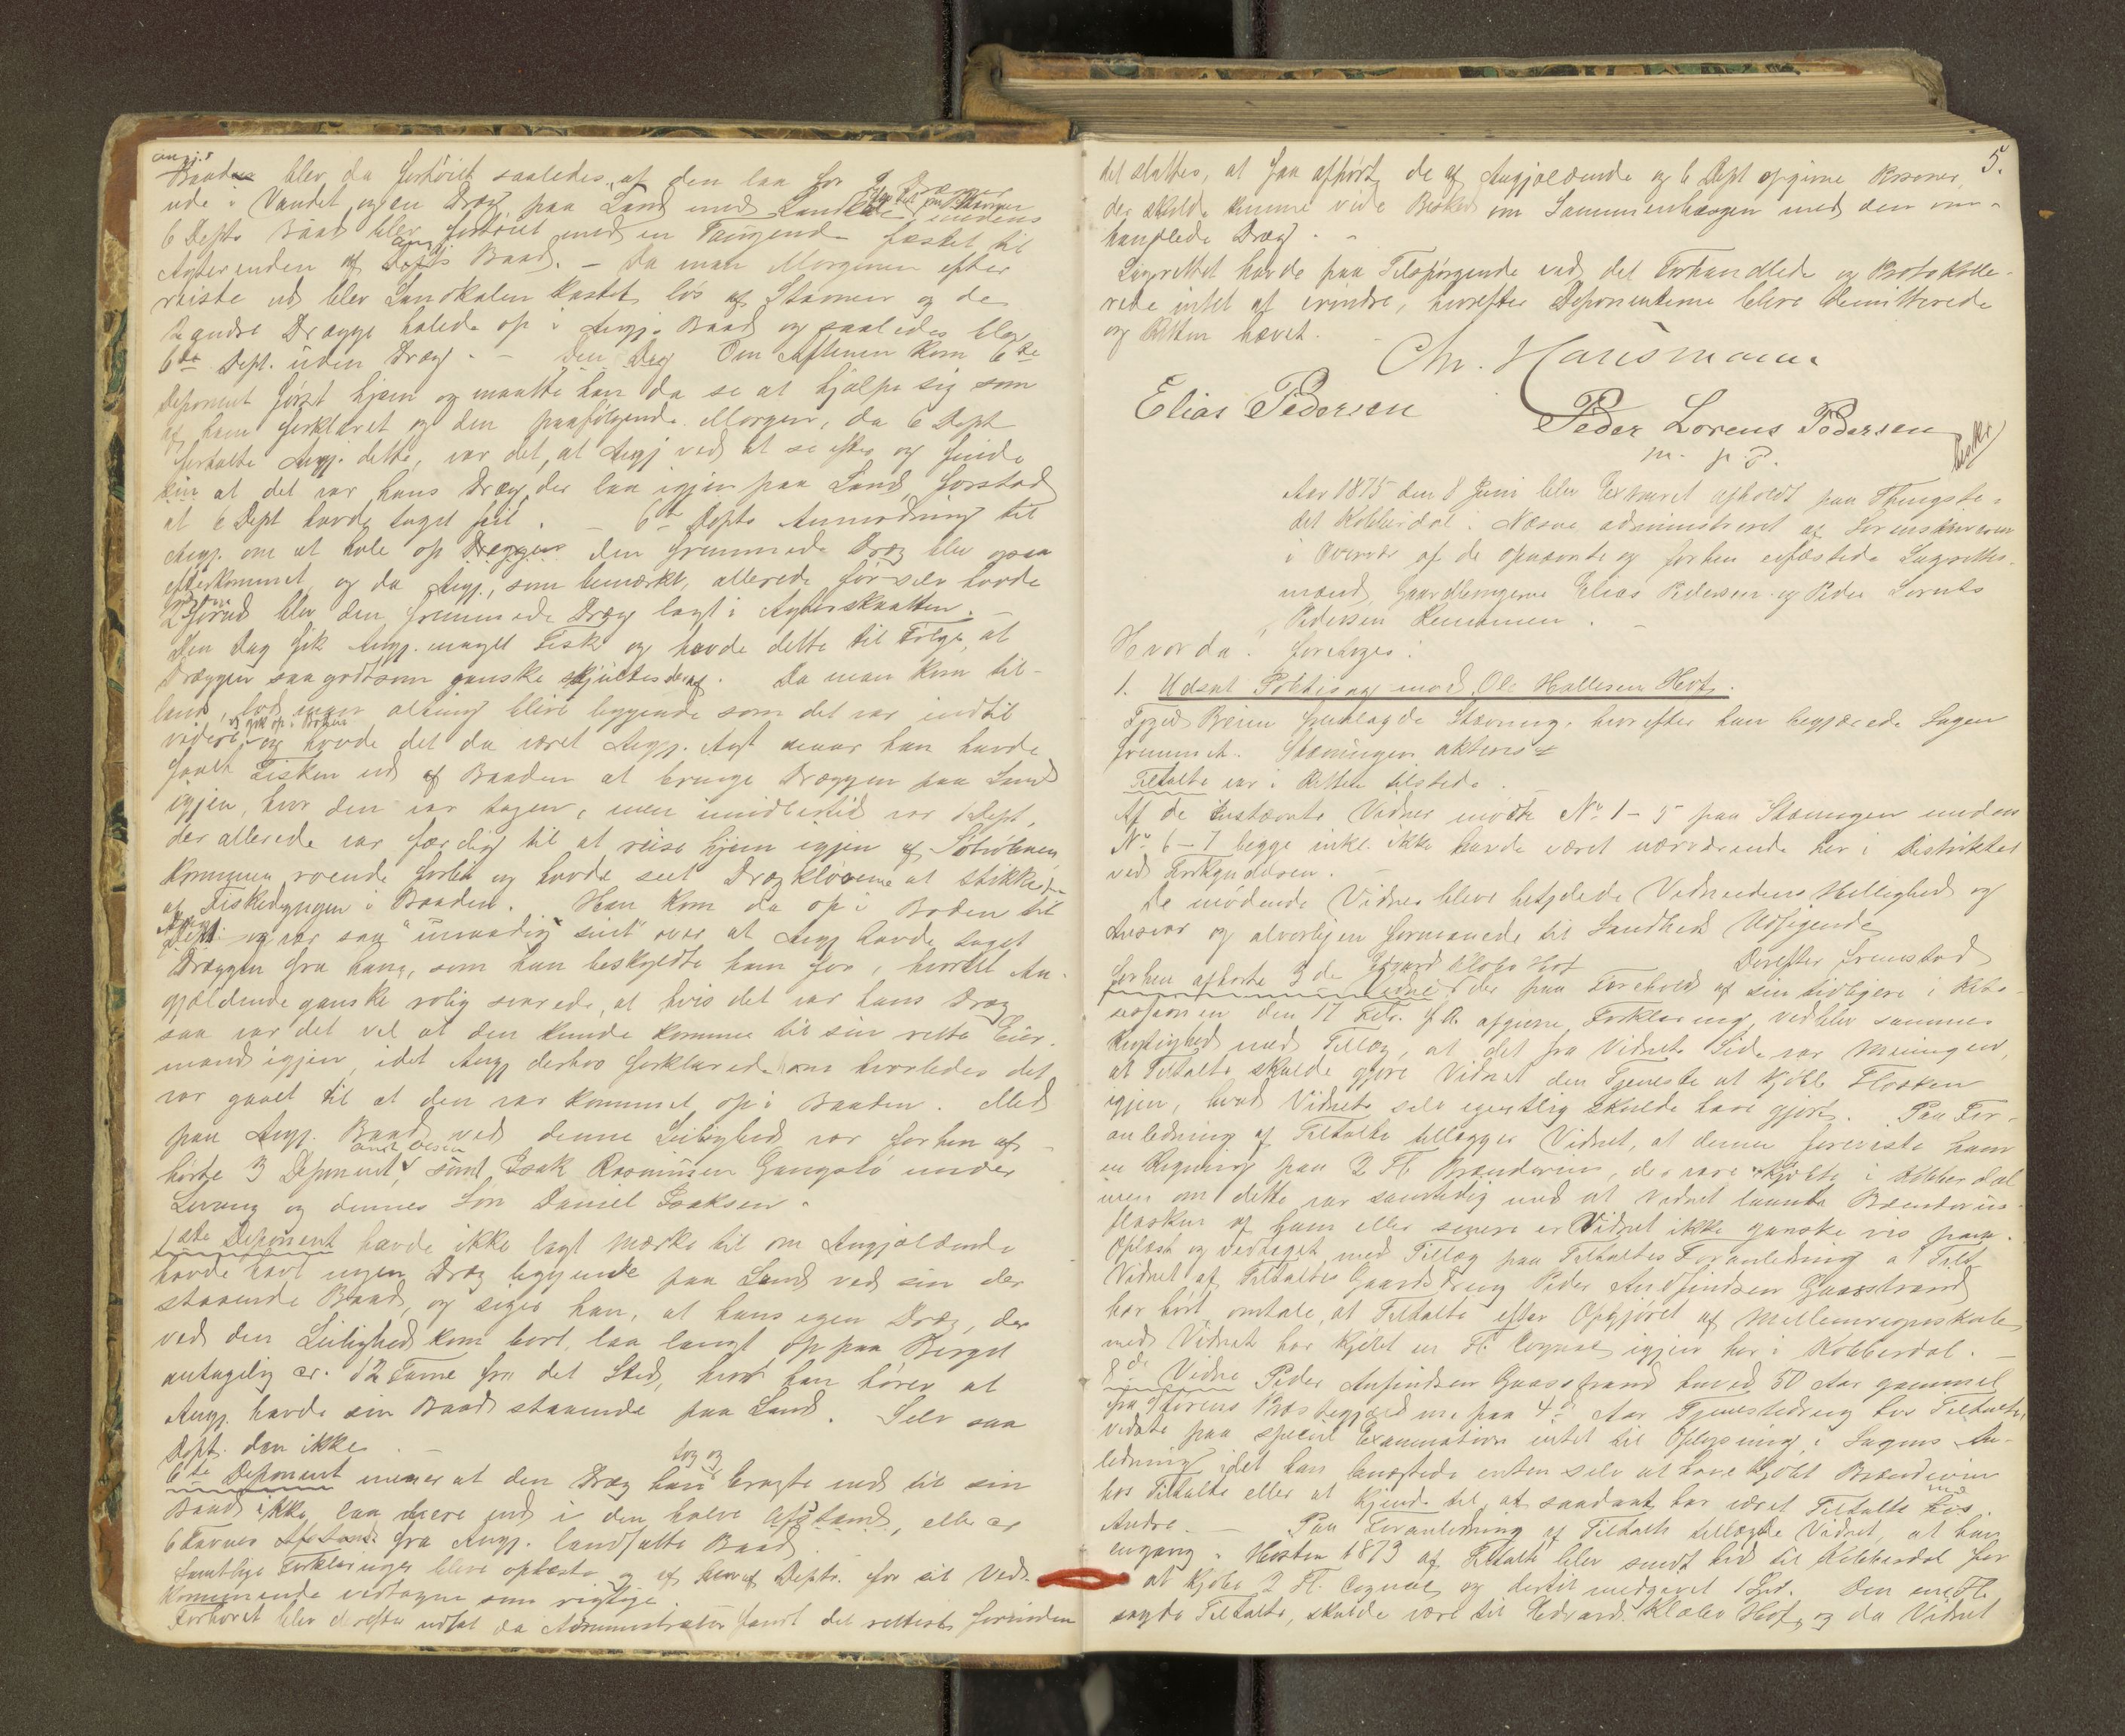 angj.s
Baad blev da fortøiet saaledes, at den laa for 2 Drægger
ude i Vandet og en Dræg paa Land med Landkale medens
6 Depts Baad blev fortøiet med en Tougende fæstet til
Agterenden af angj Baad. – Da man Morgenen efter
reiste ud blev Landkalen kastet løs af Stævnen og de
2 andre Drægge halede op i Angj. Baad og saaledes blev
6te Dept. uden Dræg. – Den Dag Om Aftenen kom 6te
Deponent først hjem og maatte han da se at hjælpe sig som
af ham forklaret og den paafølgende Morgen, da 6 Dept
fortalte Angj. dette, var det, at Angj ved at se efter og finde
sin at det var hans Dræg, der laa igjen paa Land, forstod
at 6 Dept havde taget feil. – 6te Depts Anmodning til
Angj. om at hale op Dræggen den fremmede Dræg blev ogsaa
efterkommet, og da Angj., som bemærket, allerede før selv havde
2 forud blev den fremmede Dræg lagt i Agterskaatten. –
Den Dag fik Angj. meget Fisk og havde dette til Følge, at
Dræggen saagodtsom ganske skjultes deraf. Da man kom til-
land, lod man alting blive liggende som det var indtil
videre og gik op i Boden og havde det da været Angj. Agt naar han havde
faaet Fisken ud af Baaden at bringe Dræggen paa Land
igjen, hvor den var tagen, men imidlertid var 1 Dept,
der allerede var færdig til at reise hjem igjen af
kommen roende forbi og havde seet Drægkløerne at stikke
af Fiskedyngen i Baaden. Han kom da op i Boden til
Angj og var saa "umaadig sint" over at Angj havde taget
Dræggen fra ham, som han beskyldte ham for, hvortil An-
gjældende ganske rolig svarede, at hvis det var hans Dræg
saa var det vel at den kunde komme til sin rette Eier-
mand igjen, idet Angj derhos forklarede ham hvorledes det
var gaaet til at den var kommet op i Baaden. Med
paa Angj. Baad ved denne Leilighed var forhen af-
hørte 3 Deponent, samt Isak Rasmussen Gangstø under
Levang og dennes Søn Daniel Isaksen.
1ste Deponent havde ikke lagt Mærke til om Angjældende
havde havt nogen Dræg liggende paa Land ved sin der
staaende Baad, og siger han, at hans egen Dræg, der
ved den Leilighed kom bort, laa langt op paa Berget
antagelig ca. 12 Favne fra det Sted, hvor han hører at
Angj. havde sin Baad staaende paa Land. Selv saa
Dept. den ikke. –
6te Deponent mener at den Dræg han tog og bragte ned til sin
Baad ikke laa mere end i den halve Afstand, eller ca
6 Favnes Afstand fra Angj. landsatte Baad.
Samtlige Forklaringer bleve oplæste og af hver af Depts. for sit Ved-
kommende vedtagne som rigtige.
Forhøret blev derefter udsat da Administrator fandt det rettest forinden
5.
det sluttes, at faa afhørt de af Angjældende og 6 Dept opgivne Personer,
der skulde kunne vide Besked om Sammenhængen med den om-
handlede Dræg. –
Lagrettet havde paa Tilspørgende ved det Forhandlede og Protokolle-
rede intet at erindre, hvorefter Deponenterne bleve demitterede
og Retten hævet. –
Chr. Hansmann
Elias Pedersen
Peder Lorens Pedersen
m. p. P.
Aar 1875 den 8 Juni blev Extraret afholdt paa Thingste-
det Kobberdal i Næsne administreret af Sorenskriveren
i Overvær af de opnævnte og forhen edfæstede Lagrettes-
mænd, Gaardbrugerne Elias Pedersen og Peder Lornts
Pedersen
Hvorda! foretages:
1. Udsat Politisag mod Ole Hallesen Hof.
fremlagde Stævning, hvorefter han begjærede Sagen
fremmet. Stævningen akteres
Tiltalte var i Retten tilstede. –
Af de indstævnte Vidner mødte No 1 – 5 paa Stævningen medens
No 6 – 7 begge inkl. ikke havde været nærværende her i Distriktet
ved Forkyndelsen. –
De mødende Vidner bleve betydede Vidneedens Hellighed og
Ansvar og alvorligen formanede til Sandheds Udsigende
Derefter fremstod
forhen afhørte 3de Vidne Edvard Klæbo Hof der paa Forehold af sin tidligere i Rets-
sessionen den 17 Febr. f. A. afgivne Forklaring, vedblev sammes
Rigtighed med Tillæg, at det fra Vidnets Side var Meningen,
at Tiltalte skulde gjøre Vidnet den Tjeneste at kjøbe Flasken
igjen, hvad Vidnet selv egentlig skulde have gjort. Paa For-
anledning af Tiltalte tillægger Vidnet, at denne foreviste ham
en Regning paa 2 Fl. Brændeviin, der vare kjøbte i Kobberdal
men om dette var samtidig med at Vidnet laante Brændeviins-
flasken af ham eller senere er Vidnet ikke ganske vis paa.
Oplæst og vedtaget med Tillæg paa Tiltaltes Foranledning at
Vidnet af Tiltaltes Gaardsdreng Peder Anfindsen Gaasstrand
har hørt omtale, at Tiltalte efter Opgjøret af Mellemregnskabet
med Vidnet har kjøbt en Fl. Cognac igjen her i Kobberdal. –
8de Vidne Peder Anfindsen Gaasstrand, 50 Aar gammel
paa 4de Aar Tjenestedreng hos Tiltalte,
vidste paa speciel Examination intet til Oplysning i Sagens An-
ledning idet han benægtede enten selv at have kjøbt Brændeviin
hos Tiltalte eller at kjende til, at saadant har været Tiltalte med
Andre. – Paa Foranledning af Tiltalte tillagde Vidnet, at han
engang i Høsten 1873 af Tiltalte blev sendt hid til Kobberdal for
at kjøbe 2 Fl. Cognac og dertil medgivet 1 Spd. Den ene Fl.
sagde Tiltalte, skulde være til Edvard Klæbo Hof, og da Vidnet